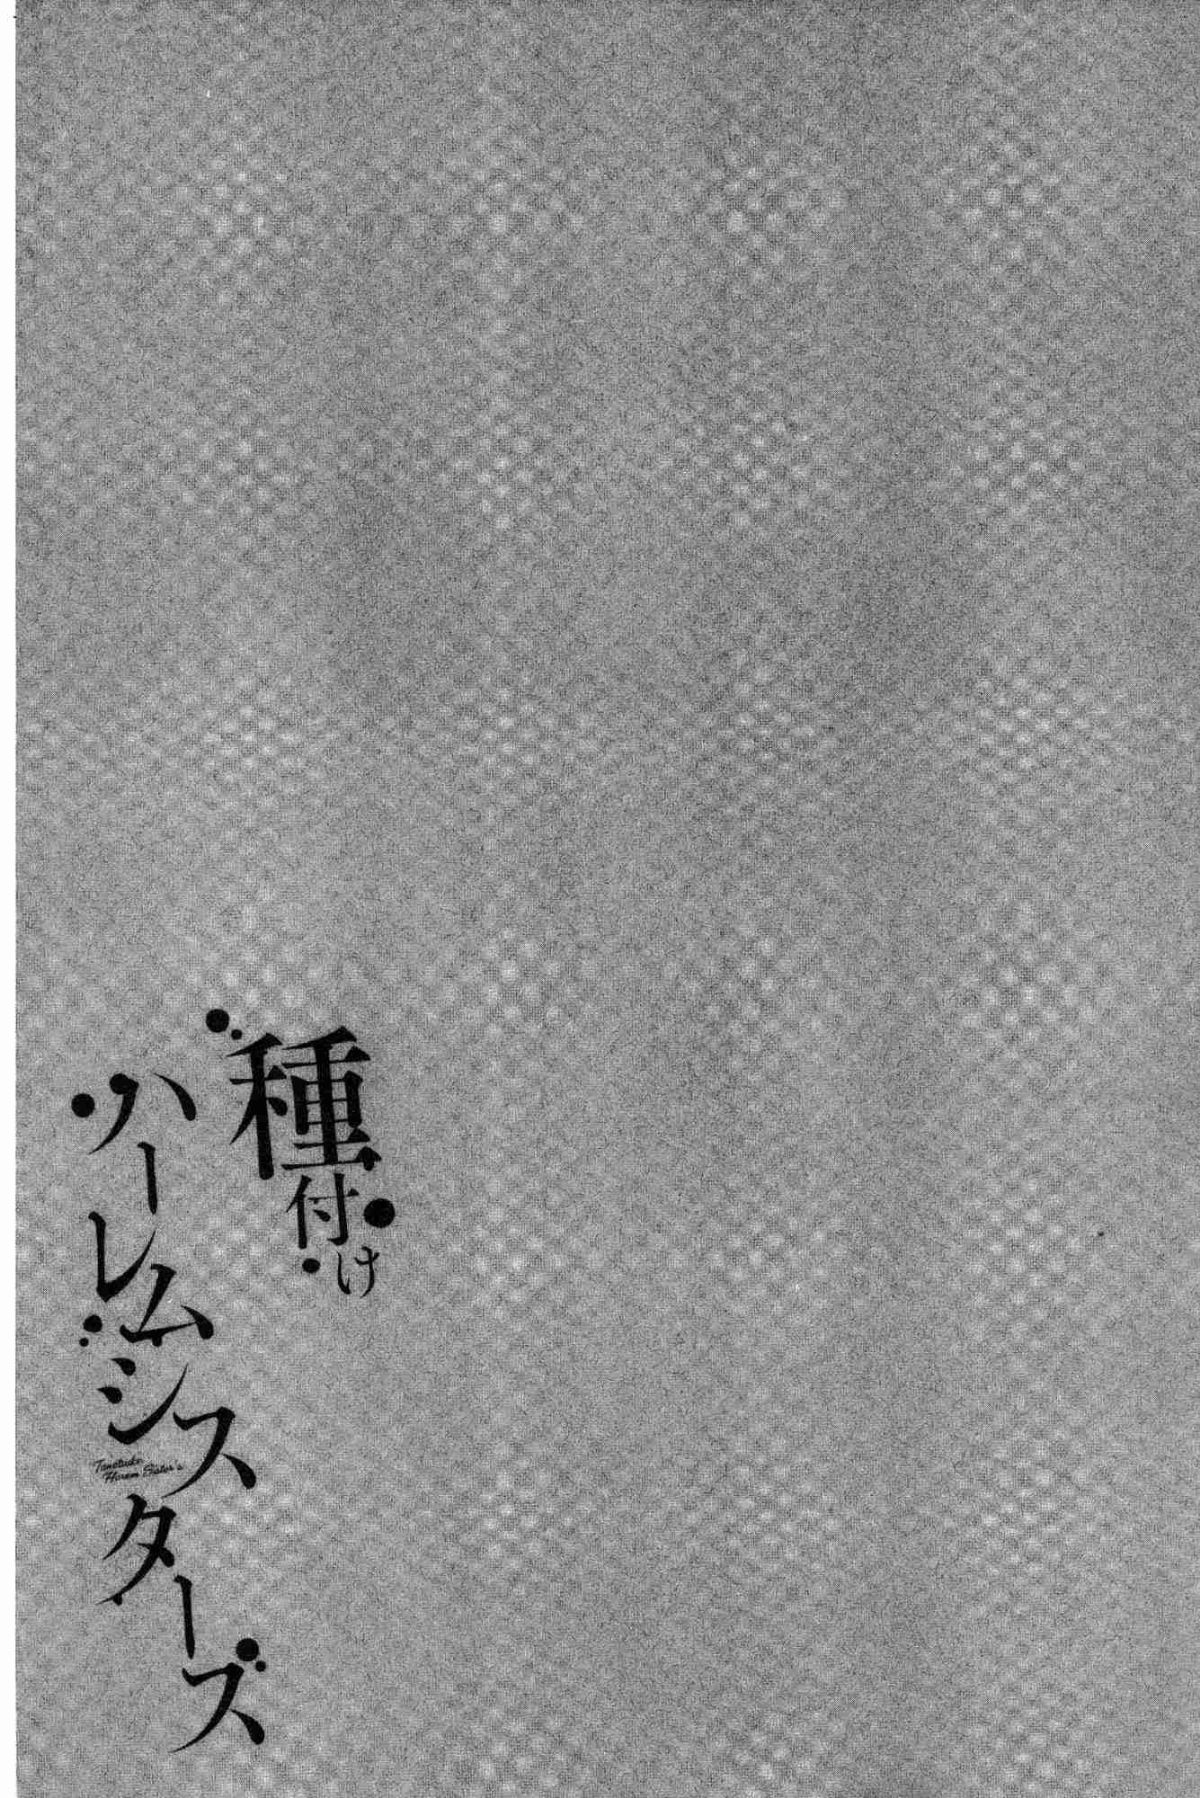 種付け
ハーレムシスターズ
Tanetsuke
Harem Sister's